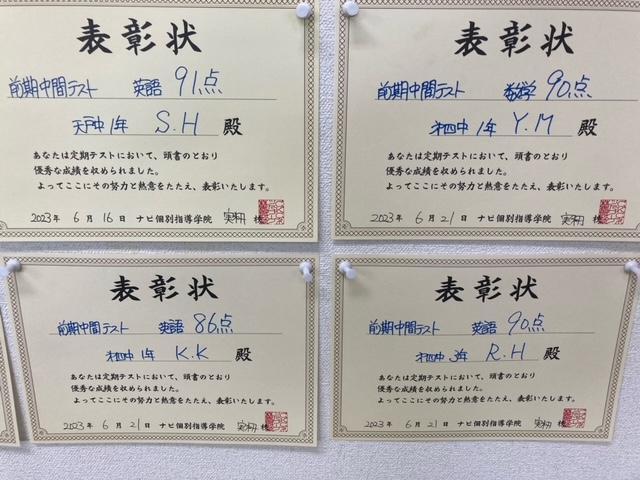 表彰状
前期中間テスト 英語 91点
天戸中 1年 S.H 殿
あなたは定期テストにおいて、頭書のとおり
優秀な成績を収められました。
よってここにその努力と熱意をたたえ、表彰いたします。
2023年 6月16日 ナビ個別指導学院 実籾校
表彰状
前期中間テスト 数学 90点
才四中 1年 Y.M 殿
あなたは定期テストにおいて、頭書のとおり
優秀な成績を収められました。
よってここにその努力と熱意をたたえ、表彰いたします。
2023年 6月21日 ナビ個別指導学院 実籾校
表彰状
前期中間テスト 英語 86点
才四中 1年 K.K 殿
あなたは定期テストにおいて、頭書のとおり
優秀な成績を収められました。
よってここにその努力と熱意をたたえ、表彰いたします。
2023年 6月21日 ナビ個別指導学院 実籾校
表彰状
前期中間テスト 英語 90点
才四中 3年 R.H 殿
あなたは定期テストにおいて、頭書のとおり
優秀な成績を収められました。
よってここにその努力と熱意をたたえ、表彰いたします。
2023年 6月21日 ナビ個別指導学院 実籾校